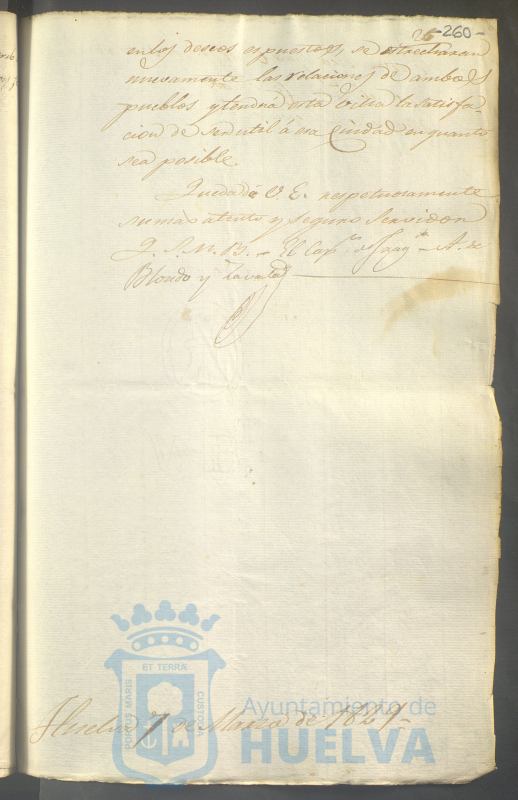 26 -260-
en los deseos expuestos, se estrecharan
nuevamente las relaciones de ambos
pueblos y tendrá esta Villa la satisfa-
cion de ser util á esa Ciudad en quanto
sea posible.
Queda de V. E. respetuosamente
su mas atento y seguro Servidor
Q. S. M. B. = El Cap.n de Frag.ta A. de
Blondo y Zavala
Huelva 7 de Marzo de 1821
PORTUS MARIS
ET TERRÆ
CUSTODIA
Ayuntamiento de
HUELVA